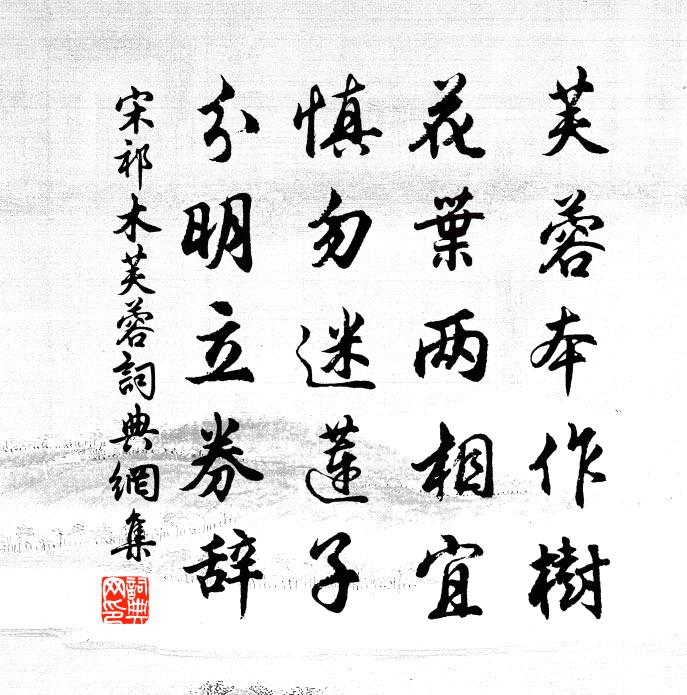 芙蓉本作樹
花葉两相宜
慎勿迷蓮子
分明立券辞
宋祁木芙蓉詞典網集
詞典網印